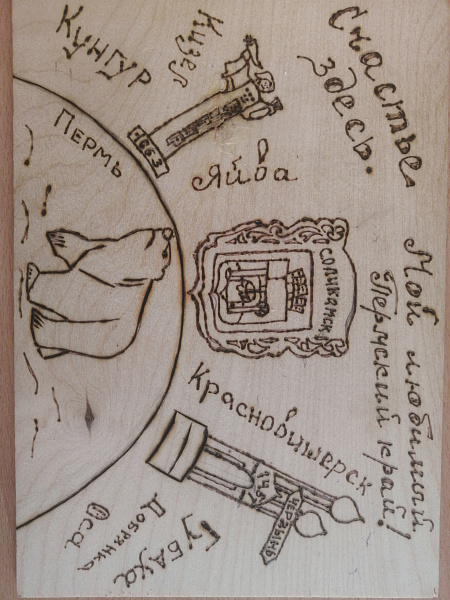 Счастье
здесь.
Мой любимый
Пермский край!
Кунгур
Кизел
1663
Яйва
Пермь
Соликамск
Красновишерск
1451
Чердынь
Губаха
Добрянка
Оса